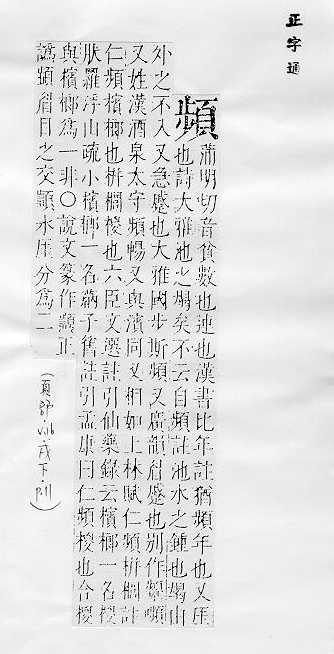 正字通
頻 蒲明切音貧數也連也漢書比年註猶頻年也又厓
也詩大雅池之竭矣不云自頻註池水之鍾也竭由
外之不入又急蹙也大雅國步斯頻又廣韻眉蹙也別作顰嚬
又姓漢酒泉太守頻暢又與濱同又相如上林賦仁頻栟閭註
仁頻檳榔也栟櫚椶也六臣文選註引仙藥錄云檳榔一名椶
狀羅浮山疏小檳榔一名蒳子舊註引孟康曰仁頻椶也合椶
與檳榔爲一非〇說文篆作正
譌頻眉目之交水厓分爲二
(頁部·戌下·P.11)